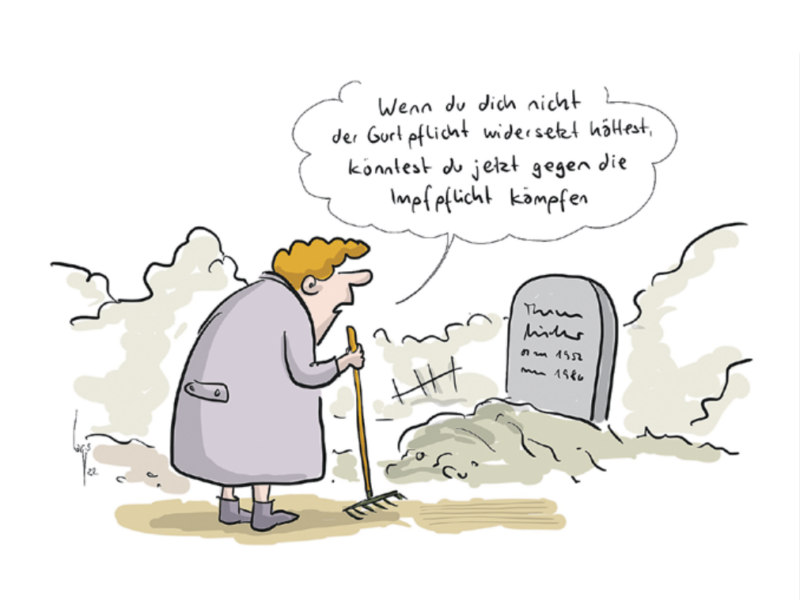 Wenn du dich nicht
der Gurtpflicht widersetzt hättest,
könntest du jetzt gegen die
Impfpflicht kämpfen
1952
22